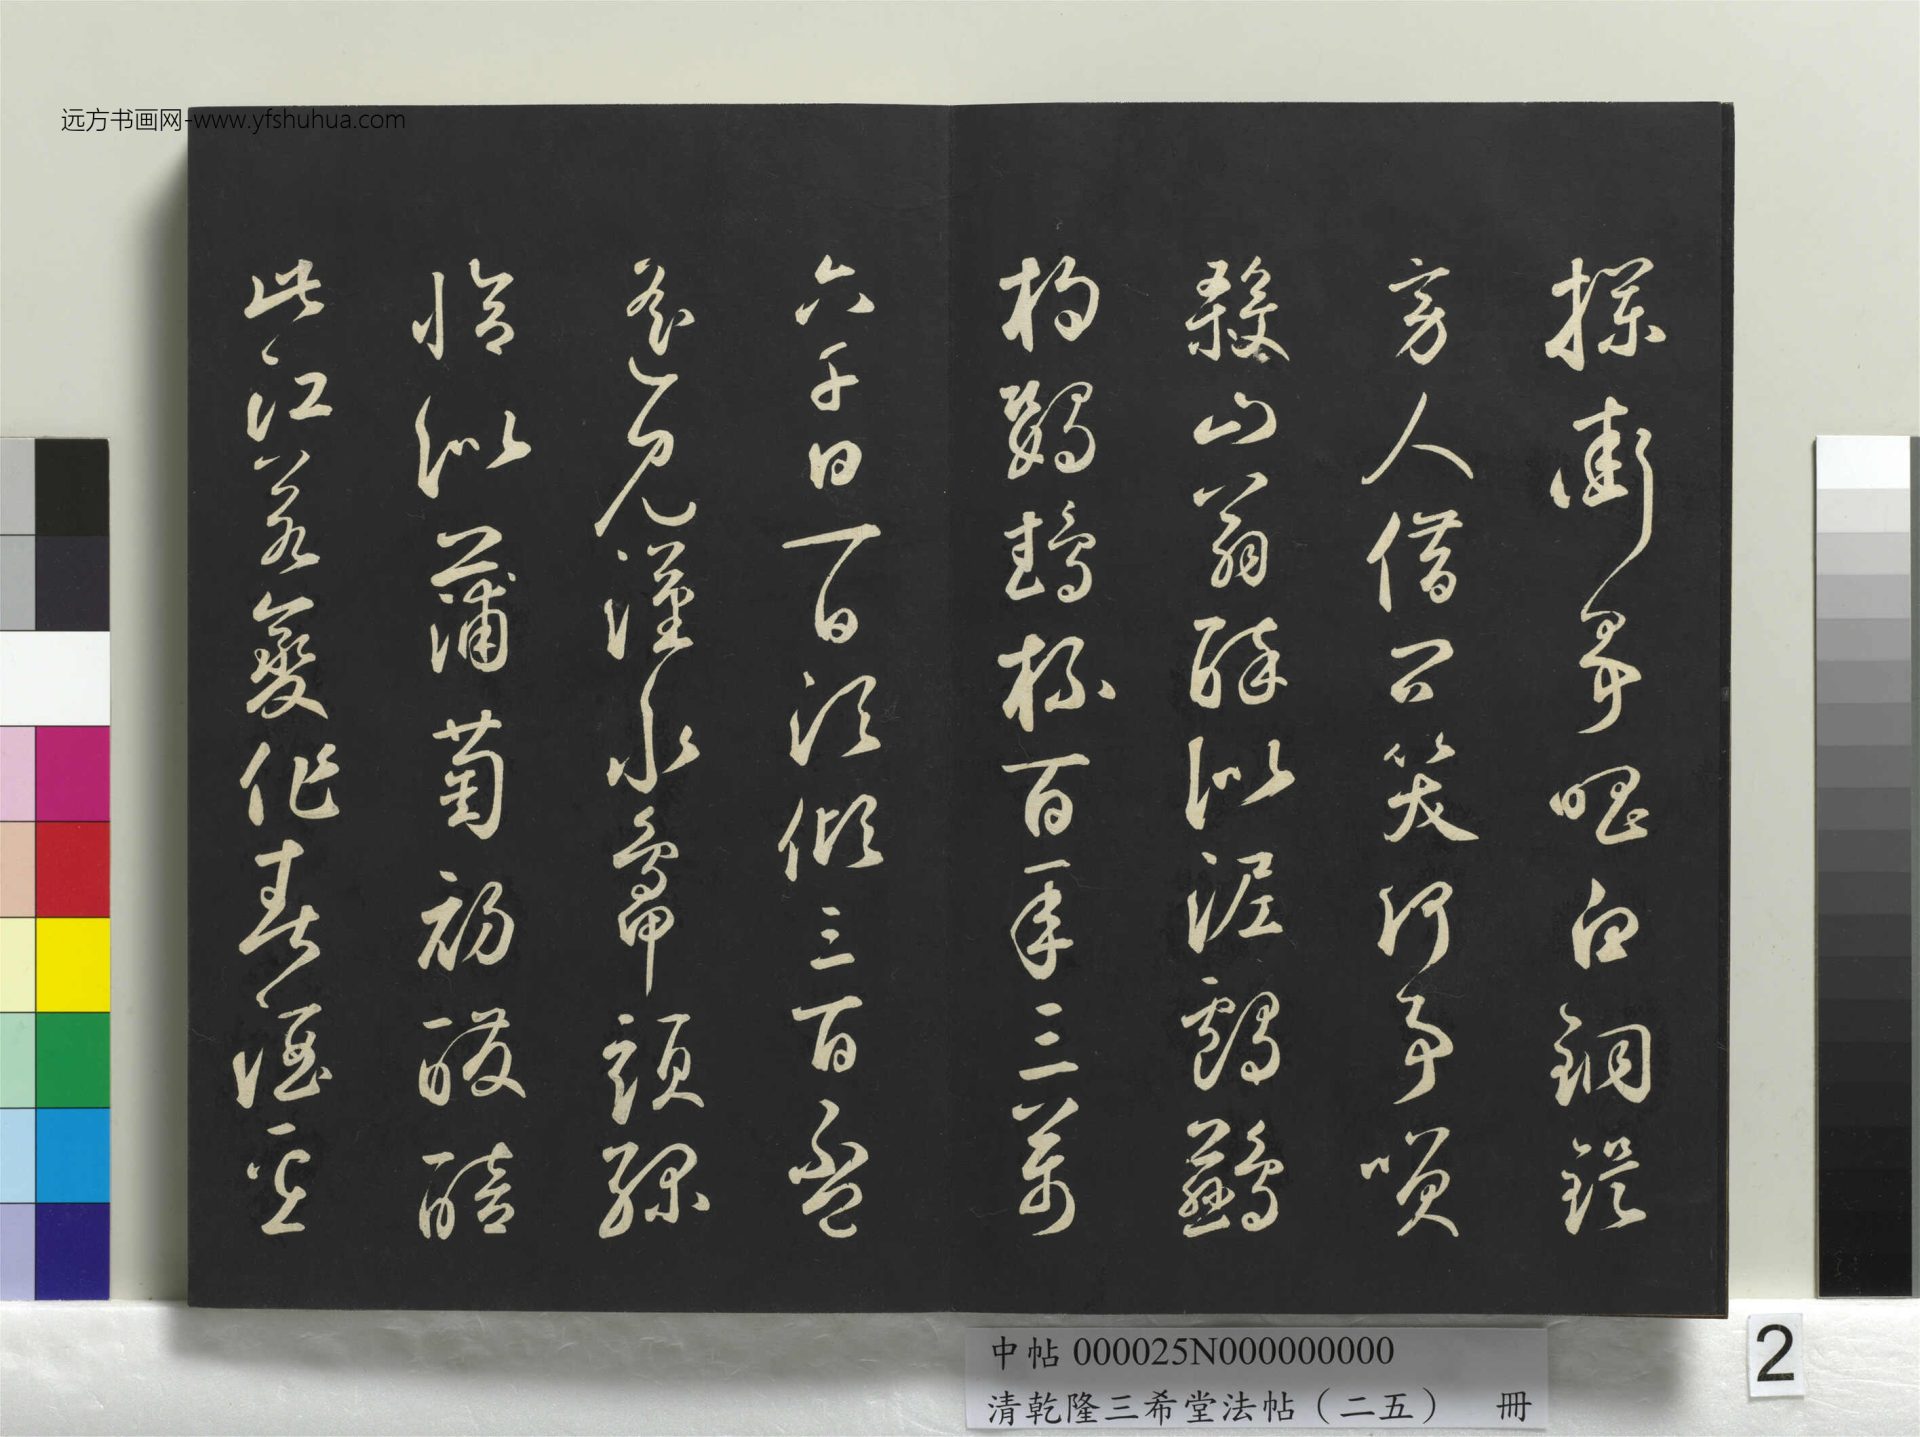 远方书画网-www.yfshuhua.com
攔街爭唱白銅鍉
旁人借問笑何事咲
殺山翁醉似泥鸕鷀
杓鸚鵡杯百年三萬
六千日一日須傾三百盃
遙見漢水鴨頭綠
恰似蒲萄初醱醅
此江若變作春酒壘
中帖 000025N000000000
清乾隆三希堂法帖（二五） 冊
2